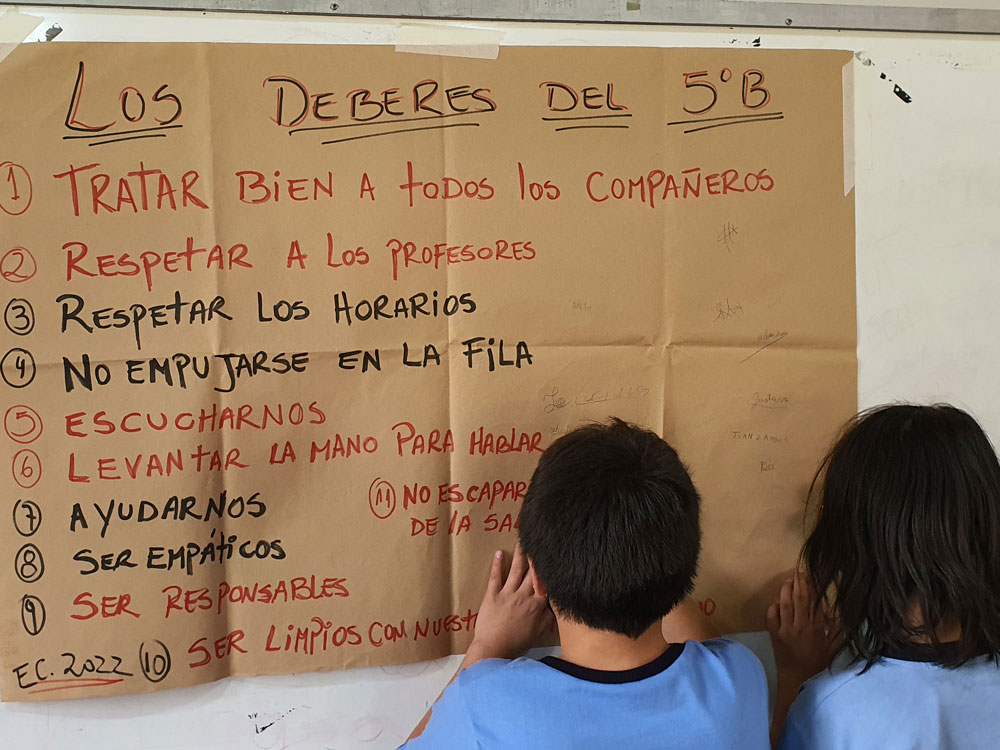 LOS DEBERES DEL 5°B
1 TRATAR BIEN A todos los COMPAÑEROS
2 RESPETAR A LOS PROFESORES
3 RESPETAR LOS HORARIOS
4 NO EMPUJARSE EN LA FILA
5 ESCUCHARNOS
6 LEVANTAR LA MANO PARA HABLAR
7 AYUDARNOS
8 SER EMPÁTICOS
9 SER RESPONSABLES
10 SER LIMPIOS CON
11 NO ESCAPAR
DE LA
EC. 2022
Gustavo